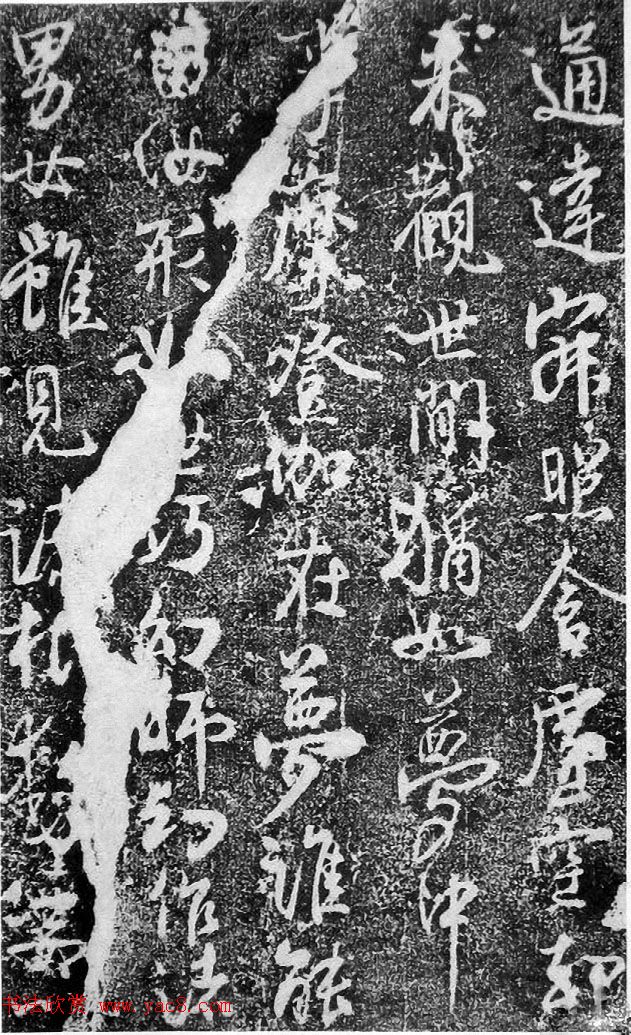 通達寂照含虛空却
來觀世間猶如夢中
事摩登伽在夢誰能
留汝形如世巧幻師幻作諸
男女雖見諸根動
书法欣赏 www.yac8.com